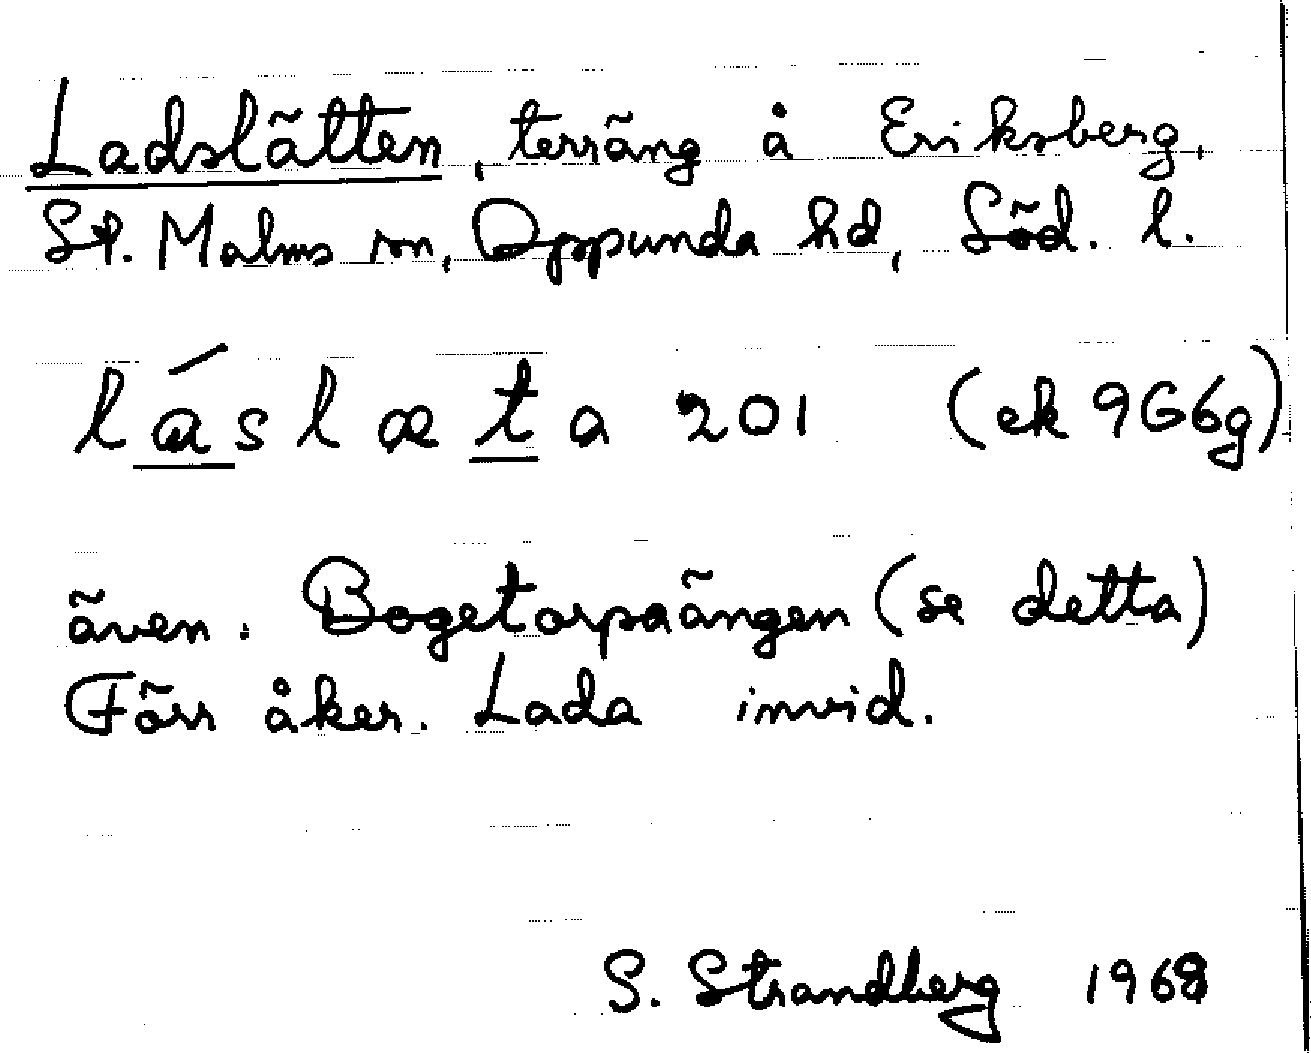 Ladslätten, terräng å Eriksberg,
St. Malms sn, Oppunda hd, Söd. l.
lá̱slæṯa 201 (ek 9G6g)
även. Bogetorpaängen (se detta)
Förr åker. Lada invid.
S. Strandberg 1968